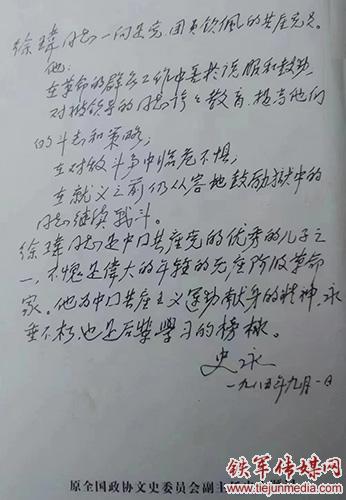 徐璋同志一向是党、团员钦佩的共产党员。
他:
在革命的群众工作中善於说服和鼓动,
对被领导的同志谆谆教育,提高他们
的斗志和策略;
在对敌斗争中临危不惧,
在就义之前仍从容地鼓励狱中的
同志继续战斗。
徐璋同志是中国共产党的优秀的儿子之
一,不愧是偉大的年轻的无产阶级革命
家。他为中国共产主义运动献身的精神,永
垂不朽,也是后辈学习的榜样。
史永
一九八四年九月一日
原全国政协文史委员会副主任
铁军传媒网
www.tiejunmedia.com